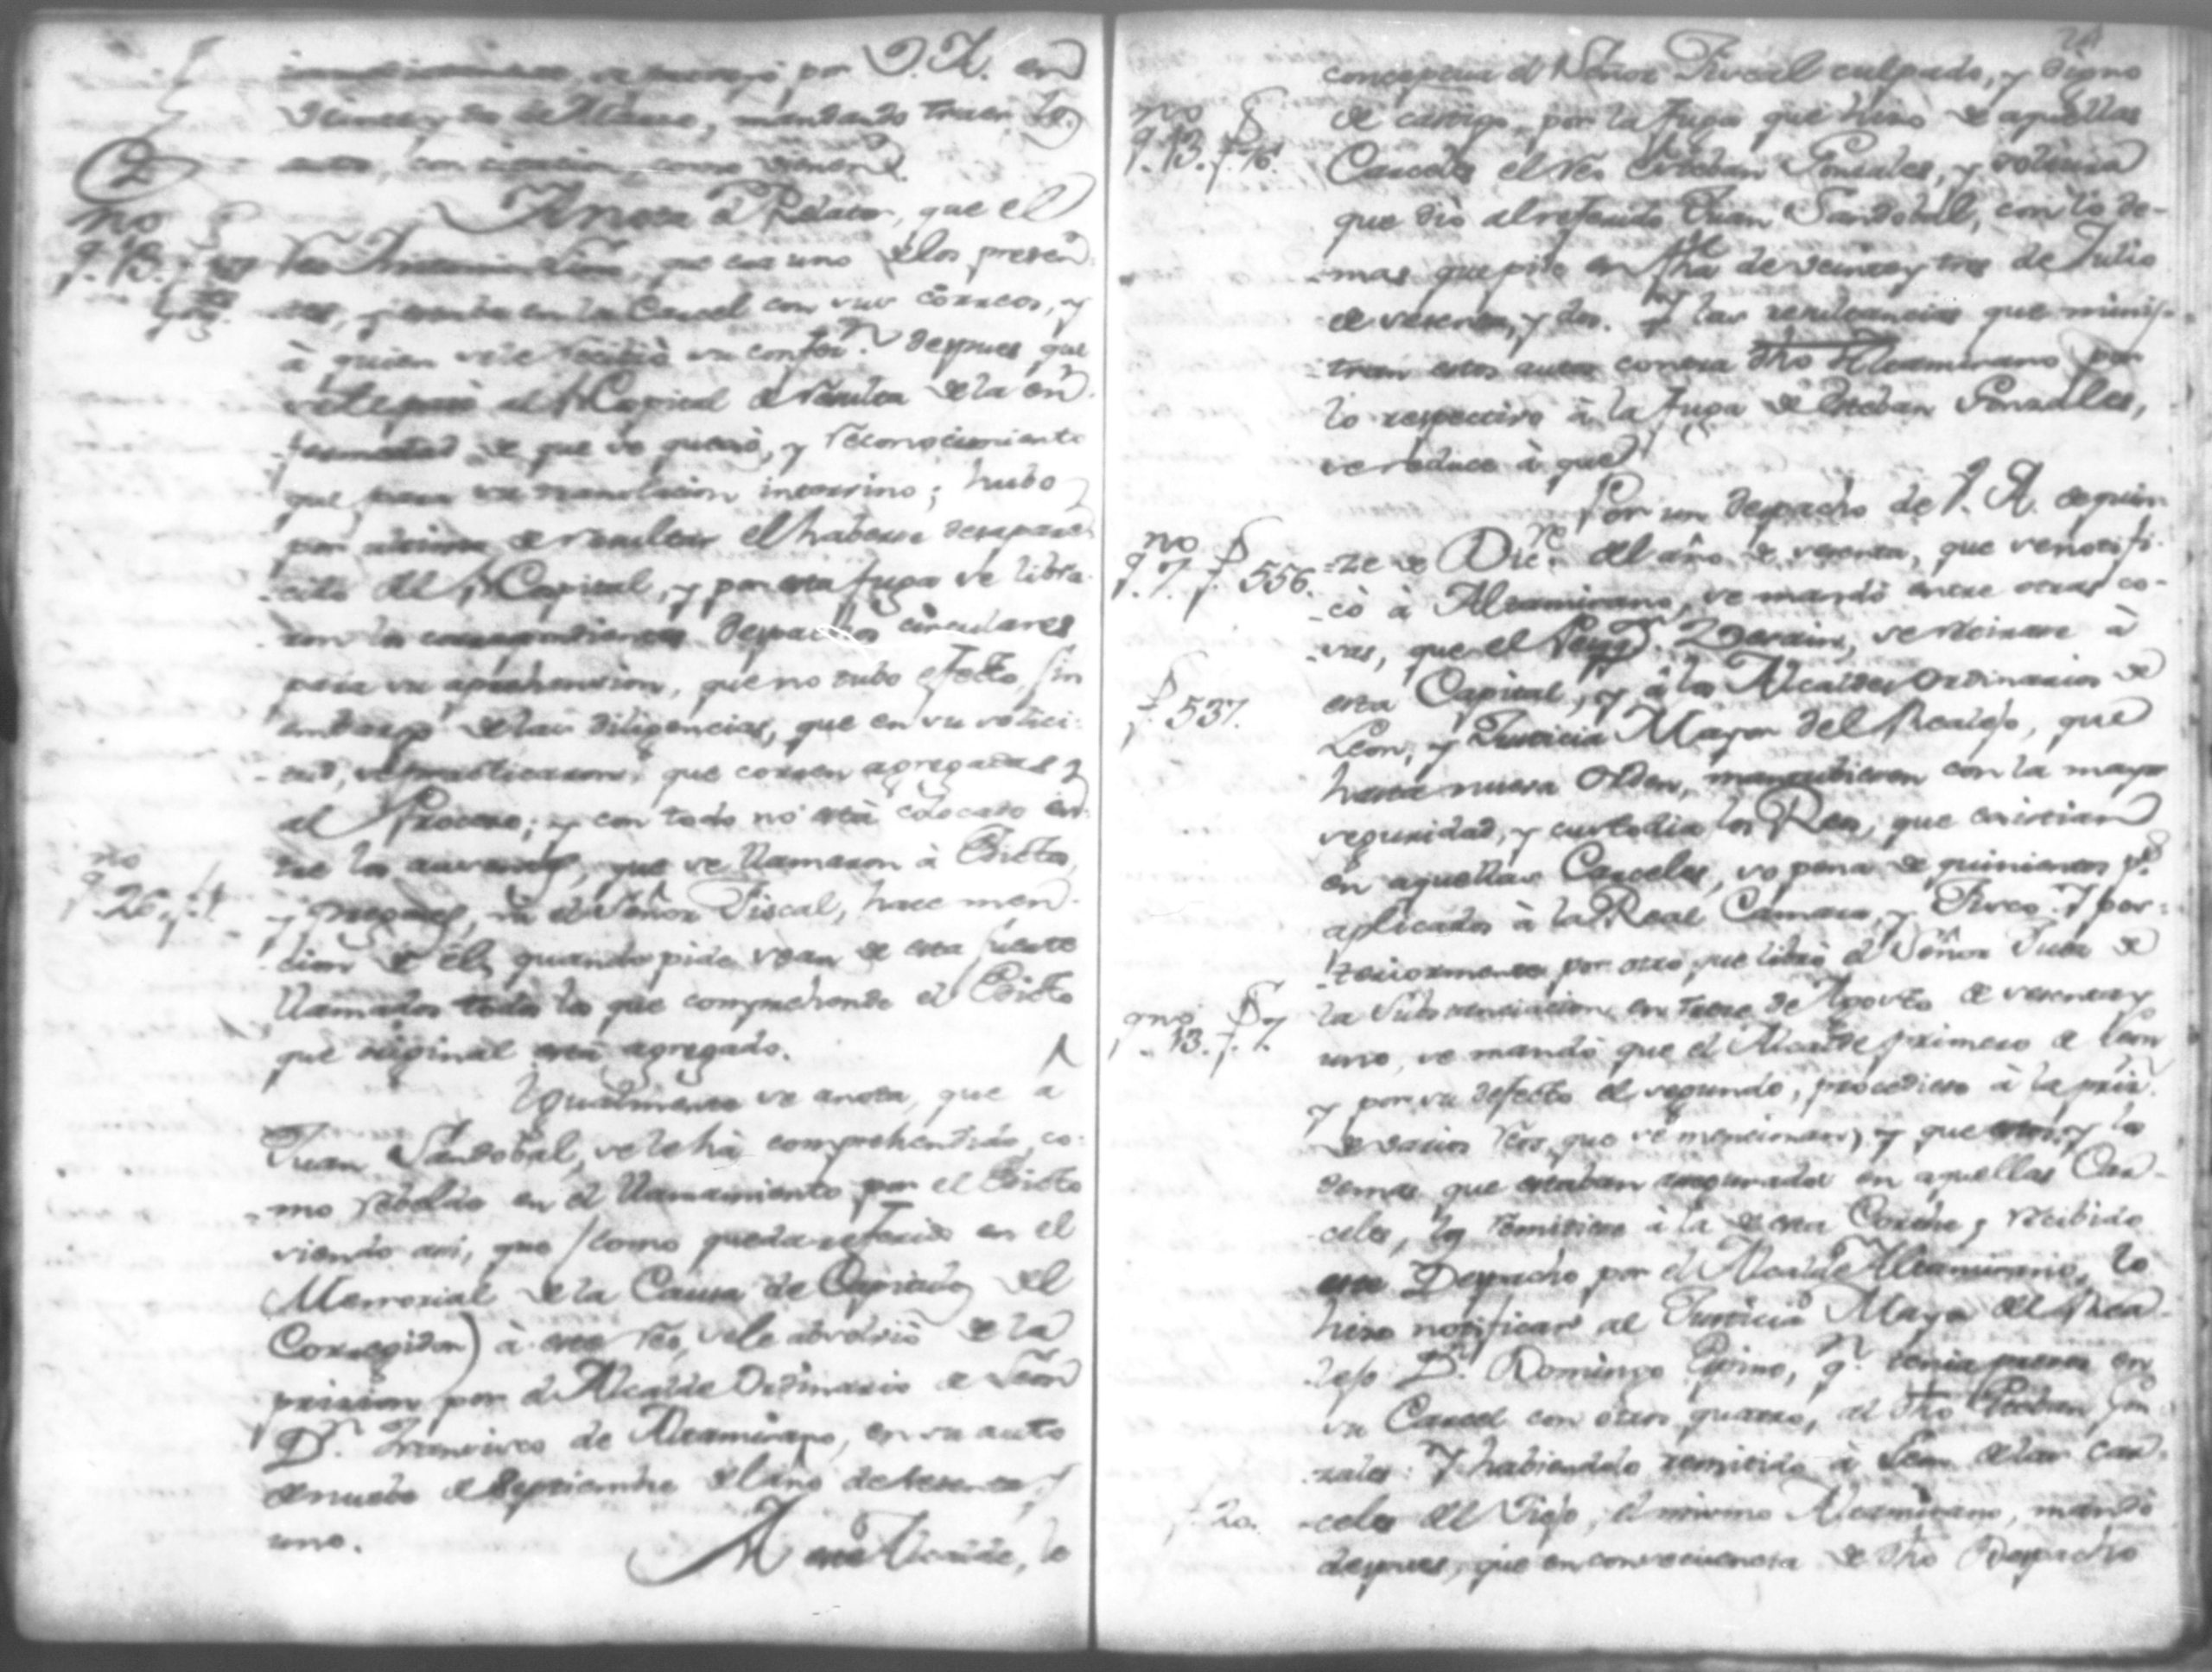 se proveyó por V. A. en
veinte y dos de Marzo, mandando traer los
autos, con citacion, como vienen.
2
Anota el Relator, que el
no
q. 13. f
Reo Antonio, que era uno de los presen-
tes, y estaba en la Carcel con sus correos, y
à quien se le recibió su confes.n despues que
se le pasó al Hospital de resulta de la en-
fermedad de que se quexó, y reconocimiento
que para su translacion intervino; hubo
por ultimo de resultar el haberse desapare-
cido del Hospital, y por esta fuga se libra-
ron los correspondientes despachos circulares
para su aprehension, que no tubo efecto, sin
embargo de las diligencias, que en su solici-
tud, se practicaron, que corren agregadas
al Proceso; y con todo no está colocado en-
tre los ausentes, que se llamaron à Edictos,
no
q. 26. f. 1
y pregones, ni el Señor Fiscal, hace men-
cion de él, quando pide sean de esta suerte
llamados todos los que comprehende el Edicto
que original está agregado.
Igualmente se anota, que a
Juan Sandobal, se le ha comprehendido, co-
mo rebelde en el llamamiento por el Edicto
siendo asi, que (como queda referido en el
Memorial de la Causa de Capitulos del
Corregidor) à este Reo, se le absolvió de la
prision por el Alcalde Ordinario de Leon
D.n Francisco de Altamirano, en su auto
de nuebe de Septiembre del año de sesenta y
uno.
A este Alcalde, le
conceptua el Señor Fiscal culpado, y digno
no
q. 13. f. 16.
de castigo, por la fuga que hizo de aquellas
Carceles el reo Esteban Gonzales, y soltura
que dio al referido Juan Sandobal, con lo de-
mas que pide en fha de veinte y tres de Julio
de sesenta, y dos. Y las resultancias que minis-
tran estos autos contra dho Altamirano por
lo respectivo à la fuga de Esteban Gonzales,
se reduce à que
Por un despacho de V. A. de quin-
no
q. 7. f 556.
ze de Dic.re del año de sesenta, que se notifi-
có à Altamirano, se mandó entre otras co-
sas, que el se retirare à
f 537.
esta Capital, y à los Alcaldes Ordinarios de
Leon, y Justicia Mayor del Realejo, que
hasta nueva Orden, mantubieren con la mayor
seguridad, y custodia los Reos, que existian
en aquellas Carceles, so pena de quinientos p.s
aplicados à la Real Camara, y Fisco. Y por-
teriormente por otro, que libró el Señor Juez de
la Substanciacion en trece de Agosto de sesenta y
qno 13. f. 7.
uno, se mandó que el Alcalde primero de Leon
y por su defecto el segundo, procediese à la pris.n
de varios reos que se mencionan, y que estos, y los
demas que estaban asegurados en aquellas Car-
celes, los remitiese à la de esta Corte; y recibido
este Despacho por el Alcalde Altamirano, lo
hizo notificar al Justicia Mayor del Rea-
lejo D.n Domingo, q.n tenia presos en
su Carcel con otros quatro, al dho Esteban Gon-
zales. Y habiendolo remitido à Leon de las car-
f 20.
celes del Viejo, el mismo Altamirano, mandó
despues, que en consecuencia de dho Despacho